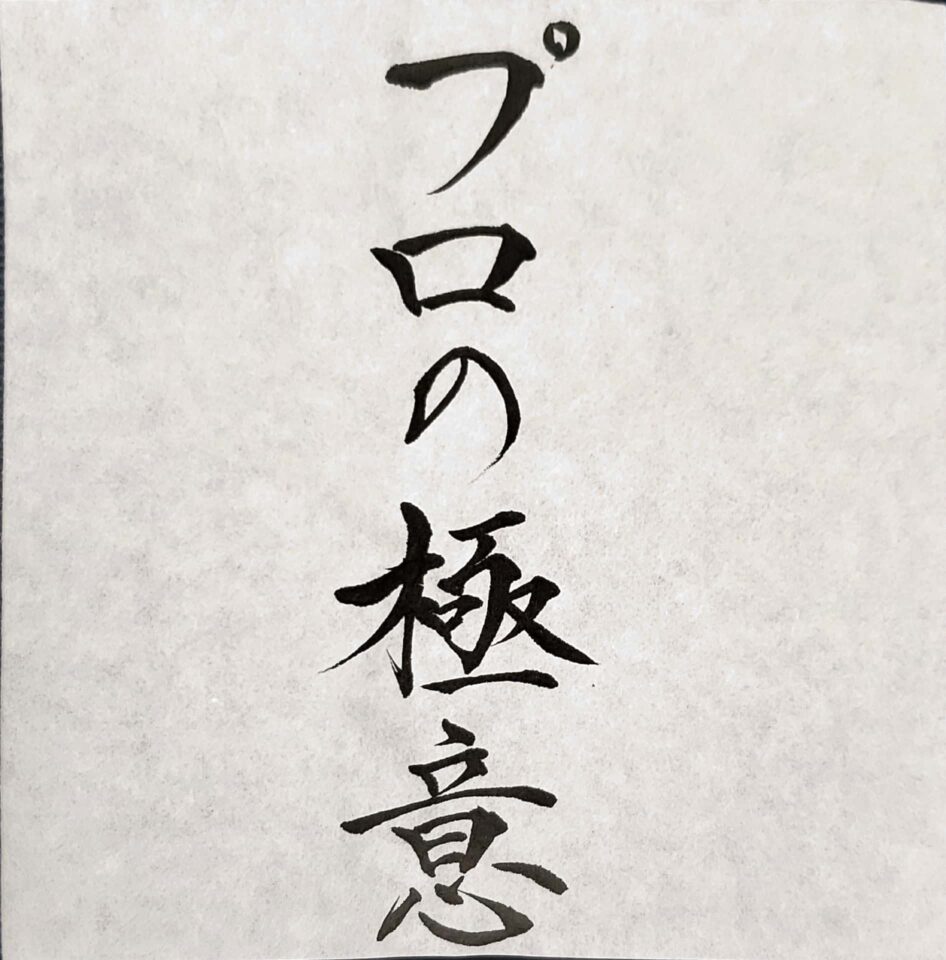 プロの極意